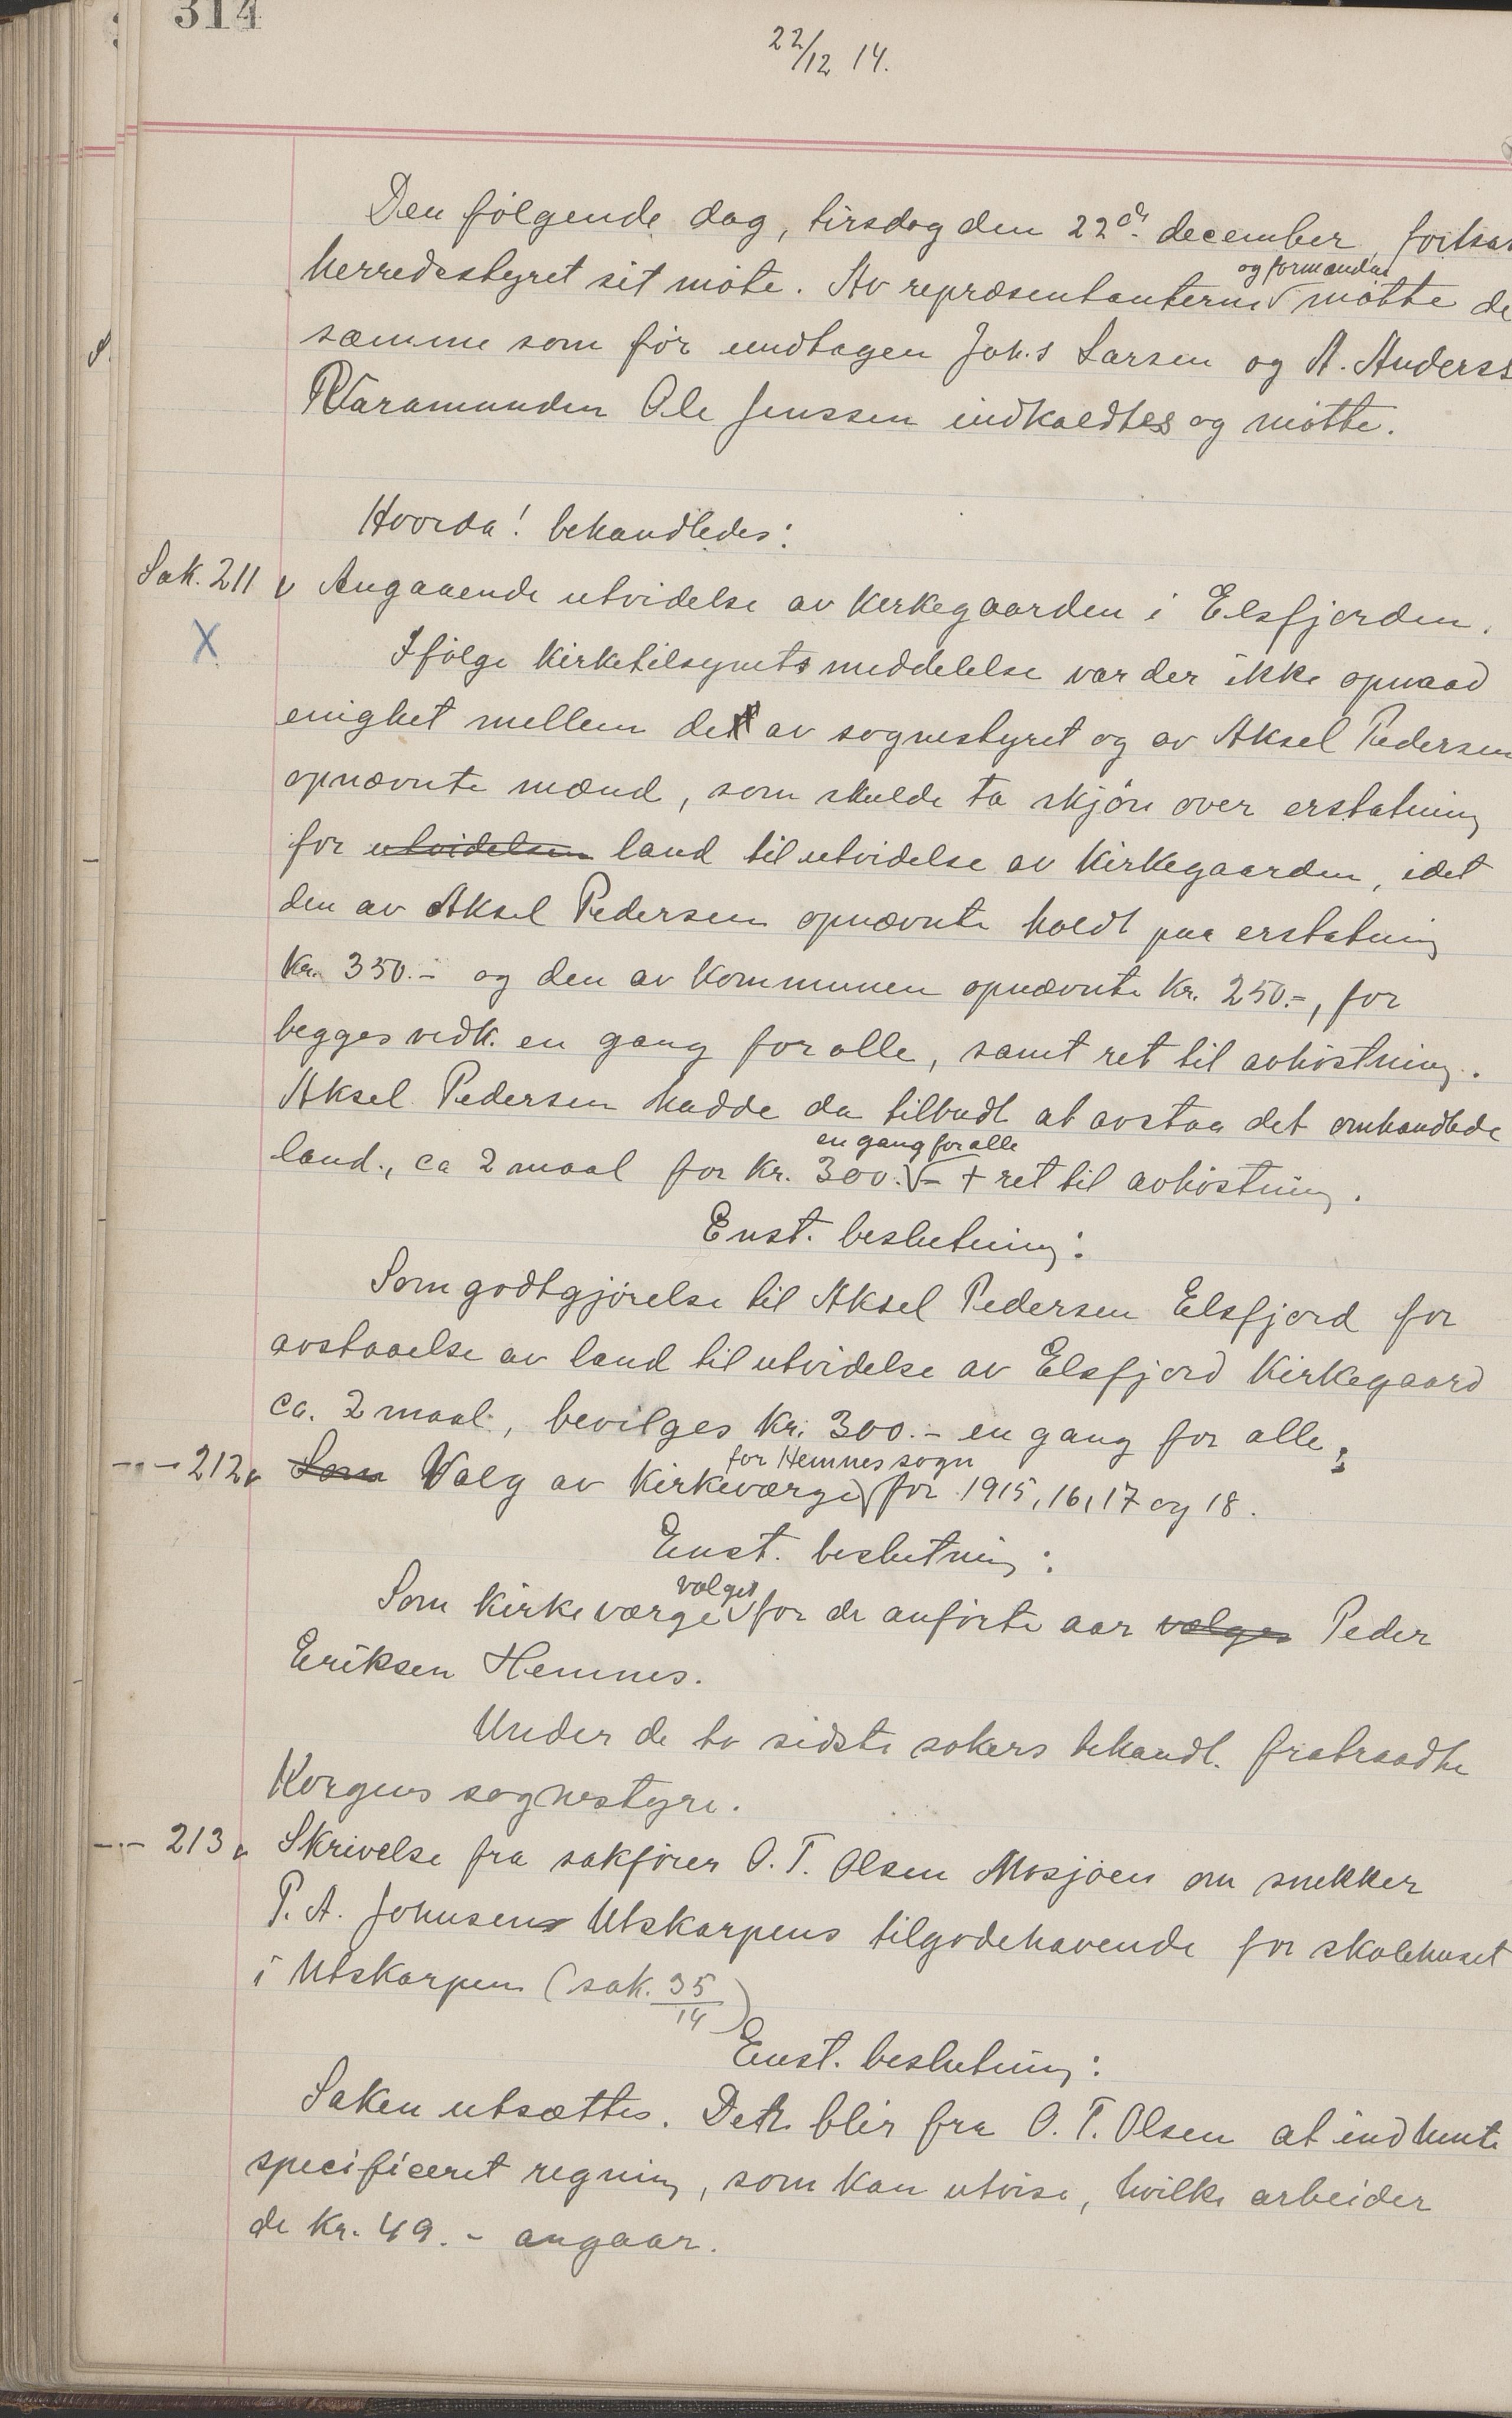 314
22/12 14.
Den følgende dag, tirsdag den 22de december, fortsat
herredsstyret sit møte. Av repræsentanterne og formænd møtte de
samme som før undtagen Johs Larsen og A. Anderss
Varamanden Ole Jenssen indkaldtes og møtte.
Hvorda! behandledes:
Sak. 211 Angaaende utvidelse av kirkegaarden i Elsfjorden.
X
Ifølge kirketilsynets meddelelse var der ikke opnaad
enighet mellem de av sognestyret og av Aksel Pedersen
opnævnte mænd, som skulde ta skjøn over erstatning
for utvidelsen land til utvidelse av kirkegaarden, idet
den av Aksel Pedersen opnævnte holdt paa erstatning
kr. 350.- og den av kommunen opnævnte kr. 250.-, for
begges vedk. en gang for alle, samt ret til avhøstning.
Aksel Pedersen hadde da tilbudt at avstaa det omhandlede
land, ca 2 maal for kr. 300.- en gang for alle + ret til avhøstning.
Enst. beslutning:
Som godtgjørelse til Aksel Pedersen Elsfjord for
avstaaelse av land til utvidelse av Elsfjord kirkegaard
ca. 2 maal, bevilges kr. 300.- en gang for alle.
-"- 212 Som Valg av kirkeværge for Hemnes sogn for 1915, 16, 17 og 18.
Enst. beslutning:
Som kirkeværge vælges for de anførte aar vælges Peder
Eriksen Hemnes.
Under de to sidste sakers behandl. fratraadte
Korgens sognestyre.
-"- 213 Skrivelse fra sakfører O. T. Olsen Mosjøen om snekker
P. A. Johnsens Utskarpens tilgodehavende for skolehuset
i Utskarpen (sak. 35/14)
Enst. beslutning:
Saken utsættes. Der blir fra O. T. Olsen at indhente
specificeret regning, som kan utvise, hvilke arbeider
de kr. 49.- angaar.